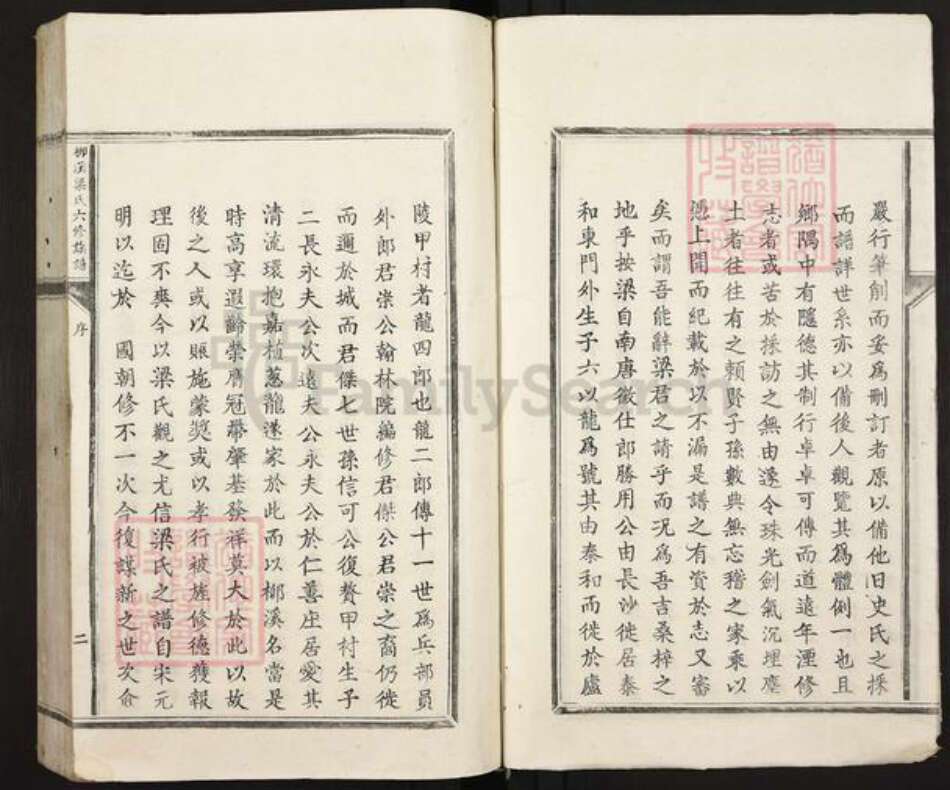 嚴行筆削而妥為刪訂者原以備他旧史氏之採
而譜詳世系亦以備後人觀覽其為體例一也且
鄉隅中有隱德其制行卓卓可傳而道遠年湮修
志者或苦於採訪之無由遂令珠光劍氣沉埋塵
土者往往有之賴賢子孫數典無忘稽之家乘以
上聞而紀載於以不漏是譜之有資於志又審
矣而謂吾能辭梁君之請乎而况為吾吉桑梓之
地乎按梁自南唐徵仕郎勝用公由長沙徙居泰
和東門外生子六以龍為號其由泰和而徙於廬
陵甲村者龍四郎也龍二郎傳十一世為兵部員
外郎君崇公翰林院編修君傑公君崇之裔仍徙
而邇於城而君傑七世孫信可公復贅甲村生子
二長永夫公次遠夫公永夫公於仁善庄居愛其
清流環抱嘉植蔥蘢遂家於此而以柳溪名當是
時高享遐齡榮膺冠帶肇基發祥莫大於此以故
後之人或以賑施蒙奬或以孝行被旌修德獲報
理固不爽今以梁氏觀之尤信梁氏之譜自宋元
明以迄於 國朝修不一次今復謀新之世次僉
柳溪梁氏六修族譜
序
二
FamilySearch